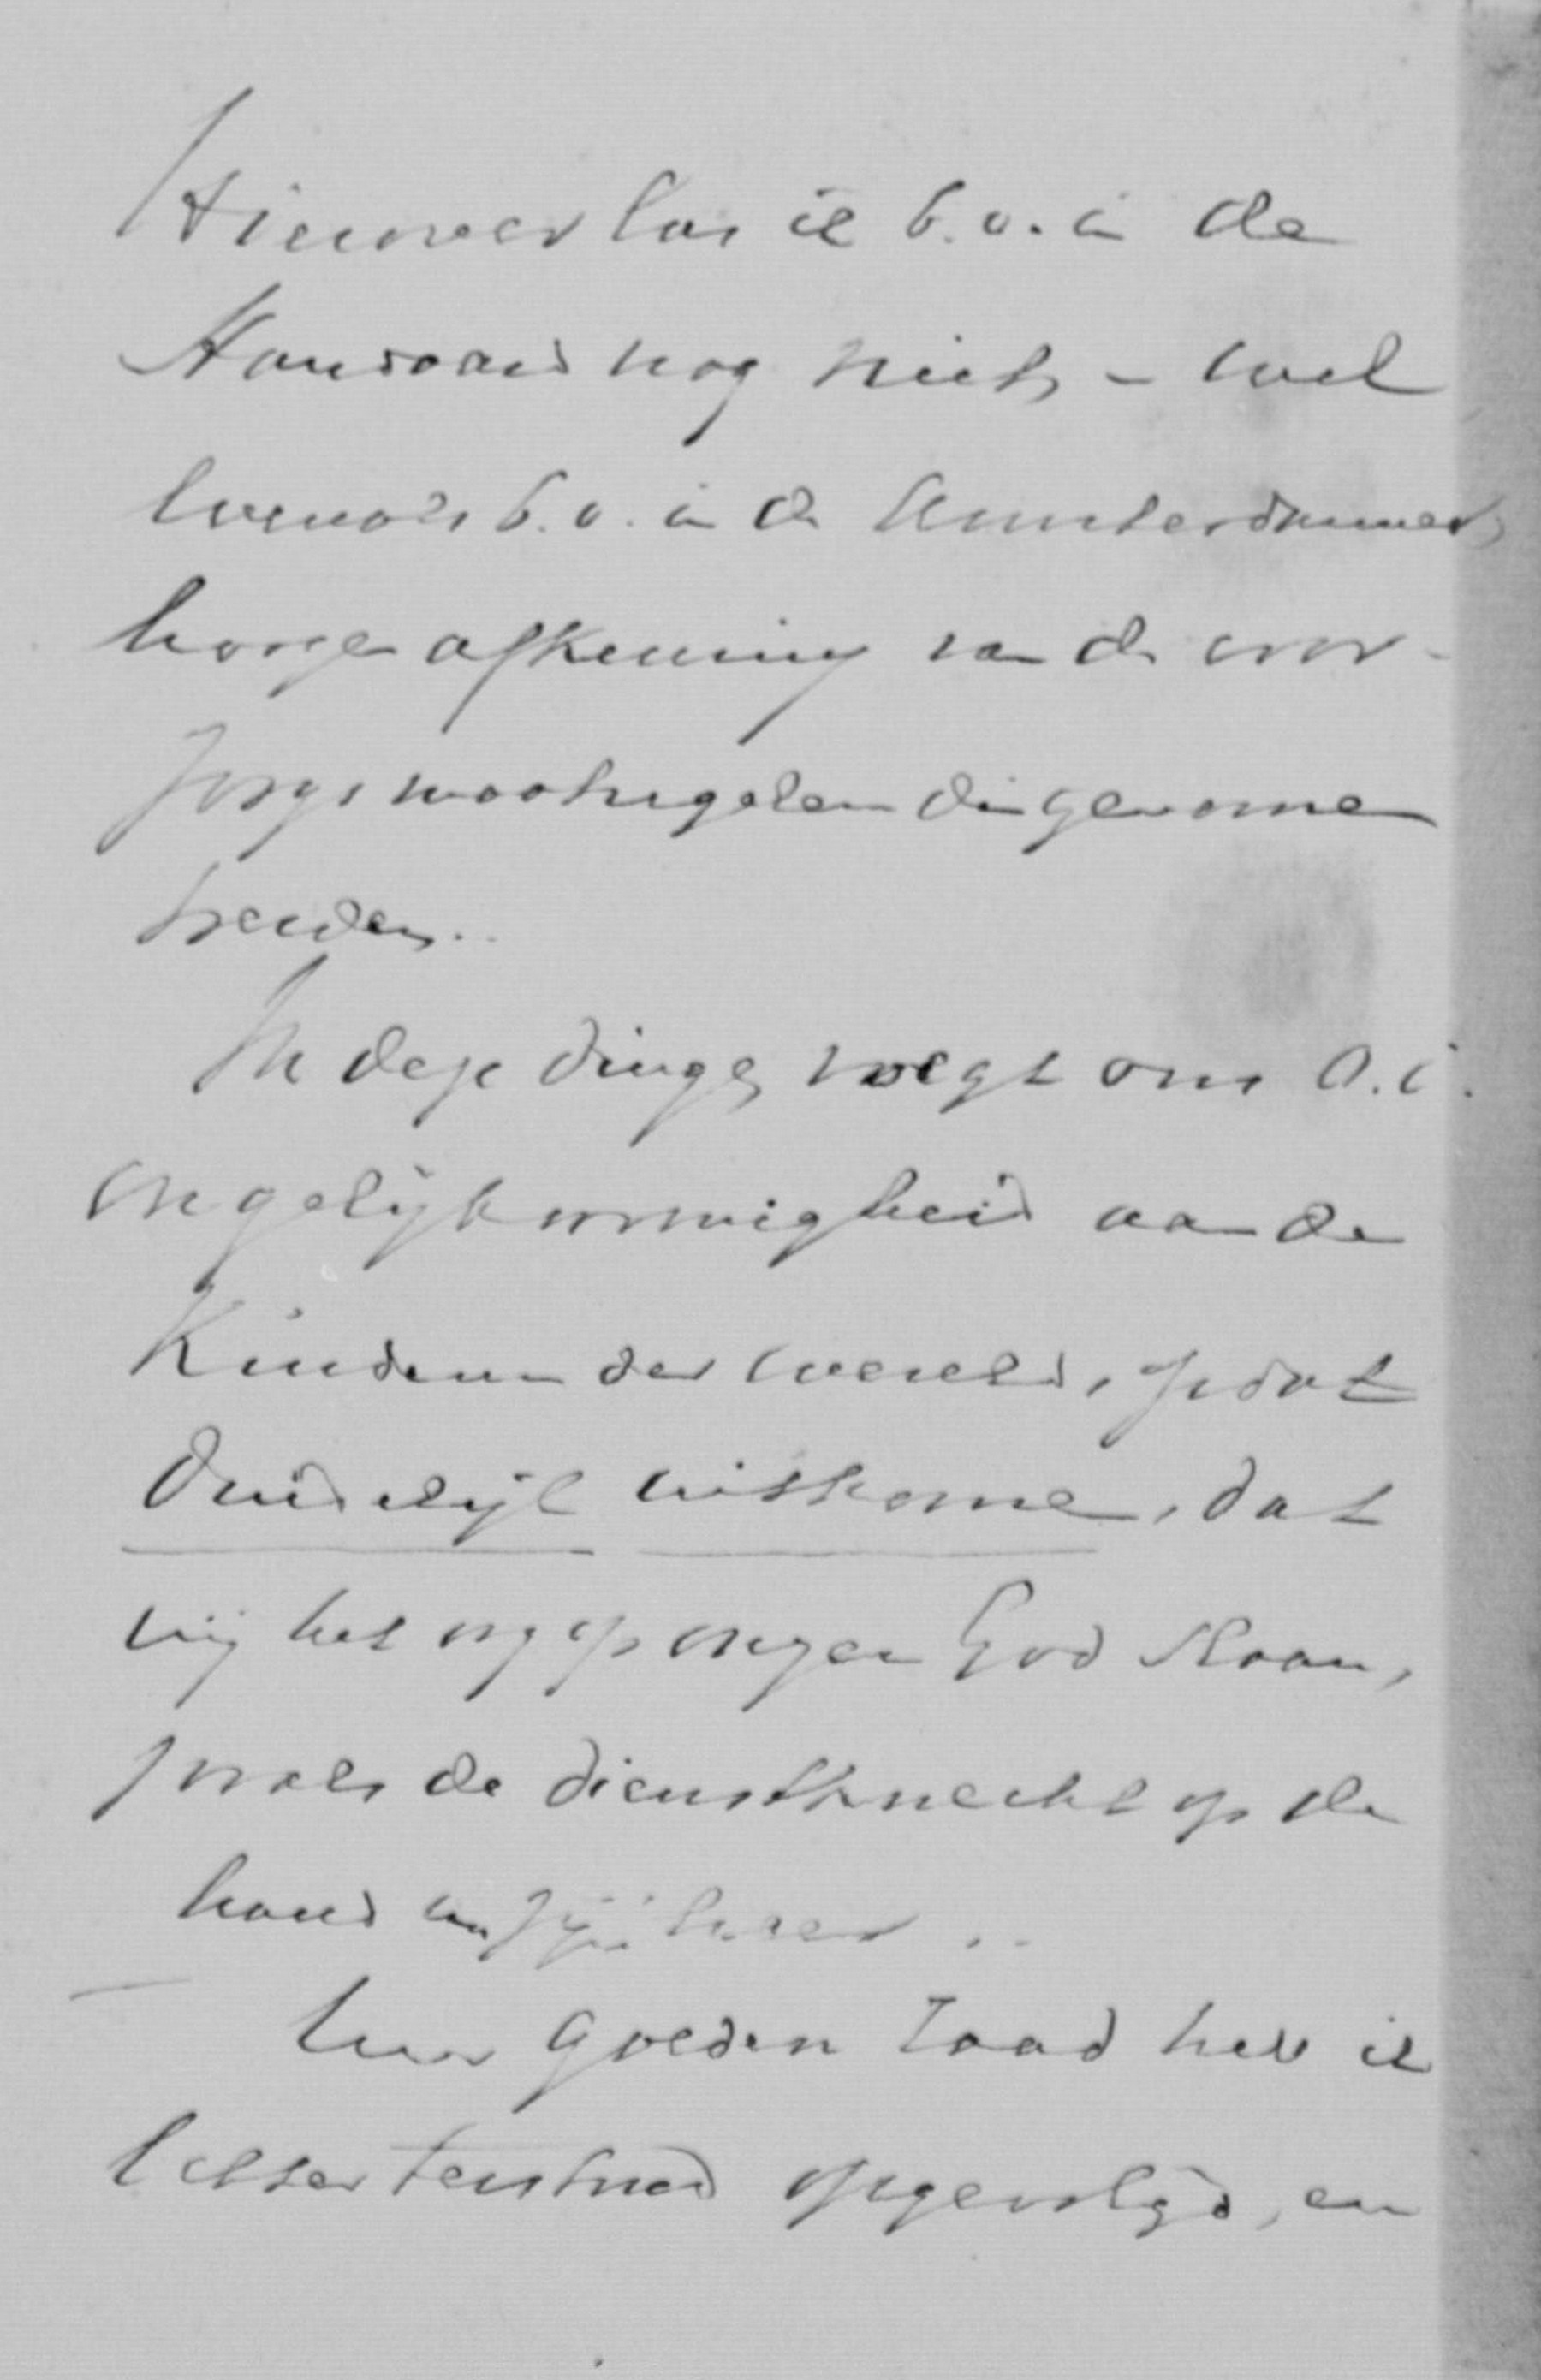 Hierover las ik b.v. in de
Standaard nog niets – wel
evenals b.v. in de Amsterdammer,
hooge afkeuring van de voor-
zorgsmaatregelen die genomen
werden..
In deze dingen voegt ons o.i.
ongelijkvormigheid aan de
Kinderen der wereld, opdat
duidelijk uitkome, dat
wij het oog op onzen God slaan,
zooals de dienstknecht op de
hand van zijn heer ..
Uw goeden raad heb ik
letter opgevolgd, en